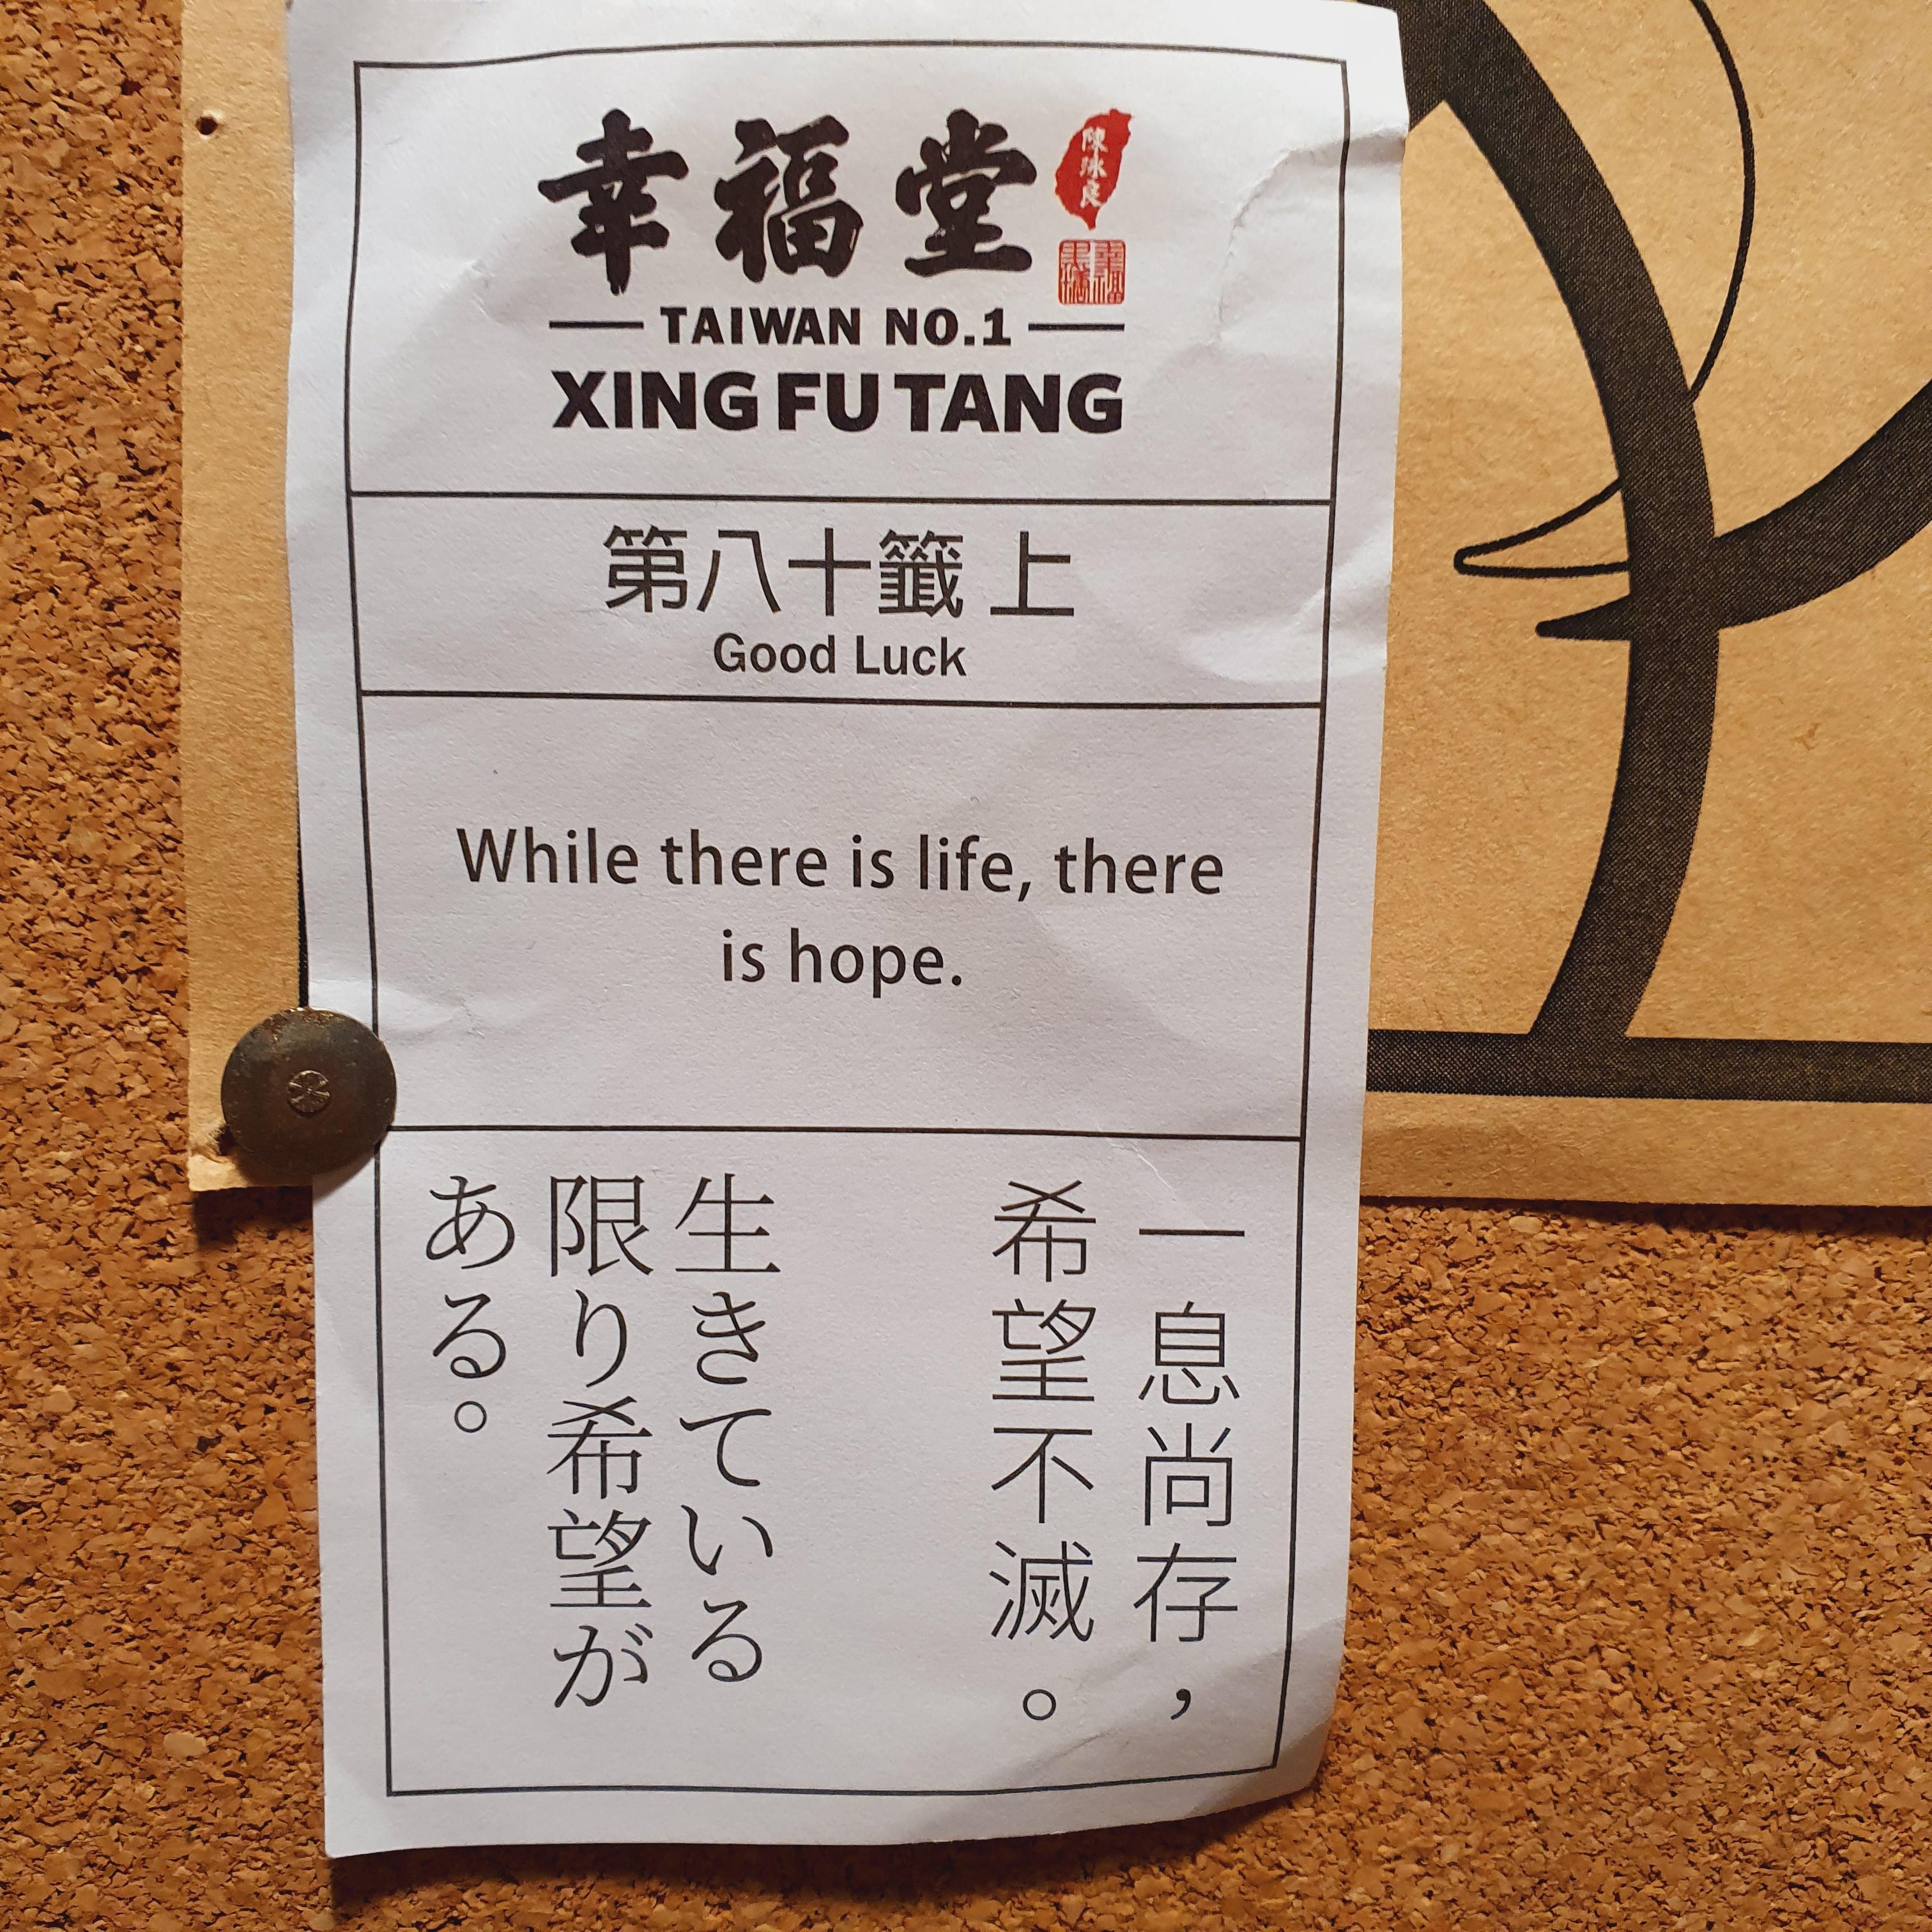 幸福堂
陳泳良
TAIWAN NO.1
XING FU TANG
第八十籤 上
Good Luck
While there is life, there
is hope.
一息尚存，
希望不滅。
生きている
限り希望が
ある。